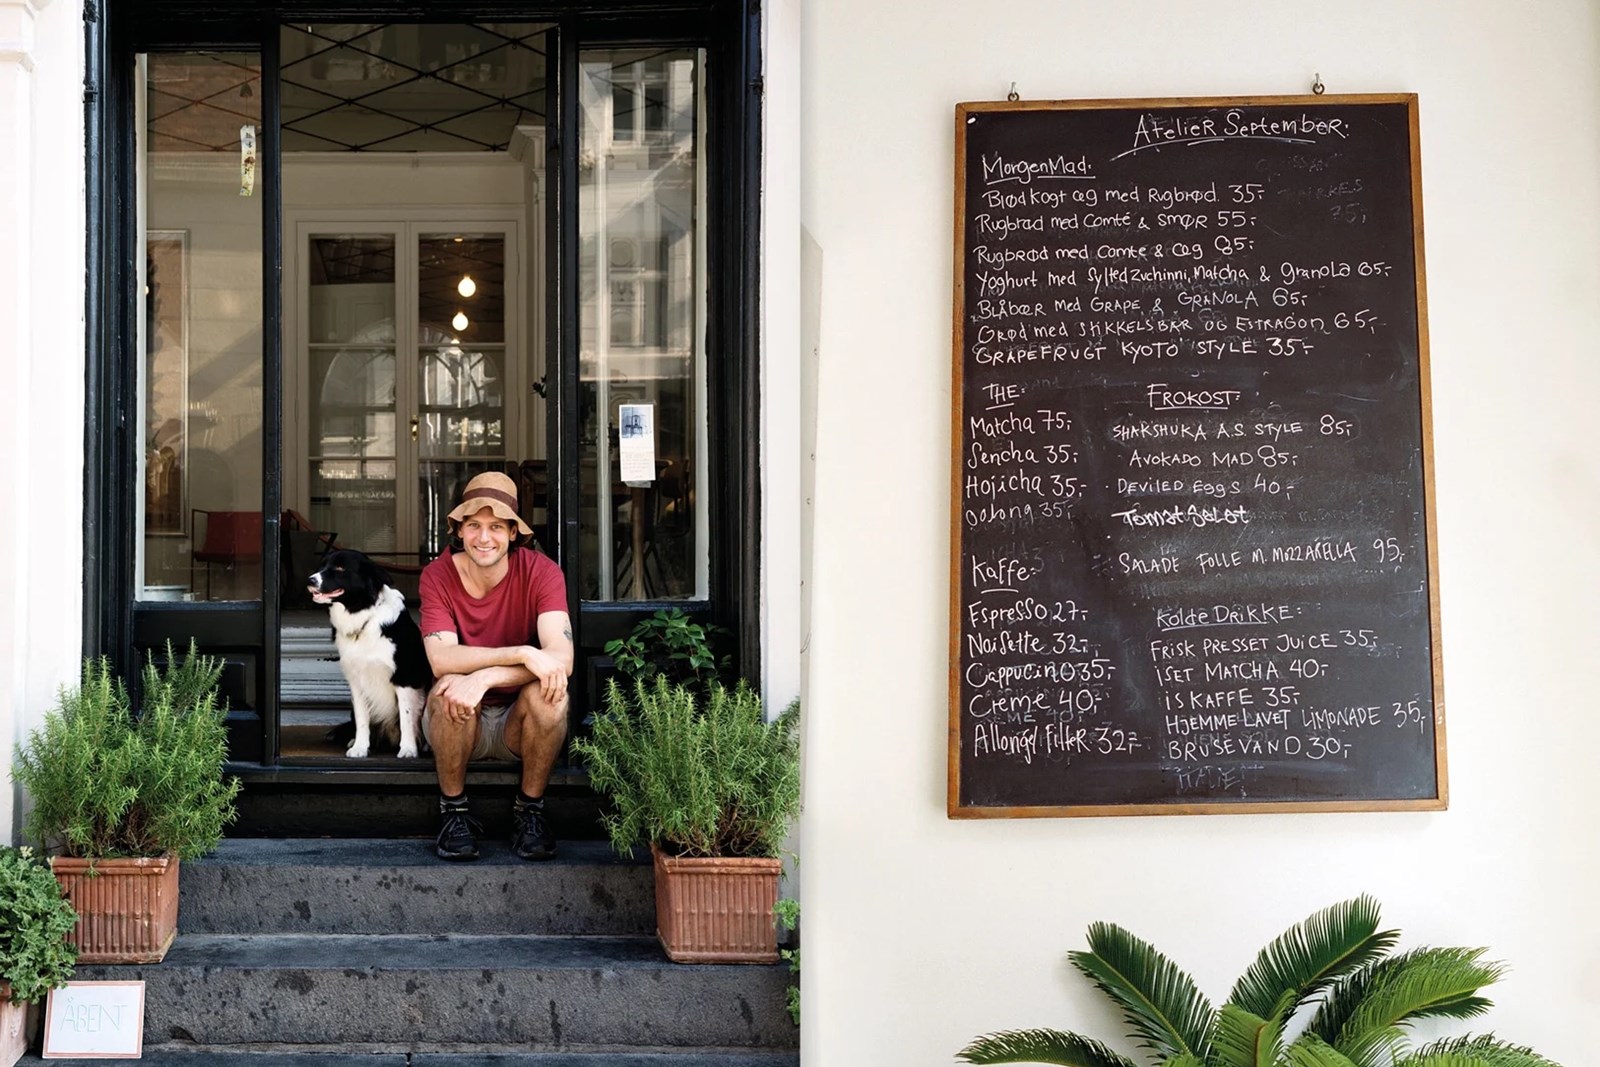 ÅBENT
Atelier September.
MorgenMad:
Blødkogt æg med Rugbrød. 35,-
Rugbrød med Comté & smør 55,-
Rugbrød med Comte & æg 85,-
Yoghurt med Sylted Zuchinni, Matcha & Granola 65,-
Blåbær med Grape & GRANOLA 65,-
Grød med STIKKELSBÆR OG ESTRAGON 65,-
GRAPEFRUGT KYOTO STYLE 35,-
THE:
Matcha 75,-
Sencha 35,-
Hojicha 35,-
Oolong 35,-
Kaffe:
Espresso 27,-
Noisette 32,-
Cappucino 35,-
Creme 40,-
Allongé/filteR 32,-
FROKOST:
SHAKSHUKA A.S. STYLE 85,-
AVOKADO MAD 85,-
DEVILED EggS 40,-
Tomat Salat
SALADE FOLLE M. MOZZARELLA 95,-
Kolde DRIKKE:
FRISK PRESSET JUICE 35,-
ISET MATCHA 40,-
ISKAFFE 35,-
HJEMMELAVET LIMONADE 35,-
BRUSEVAND 30,-